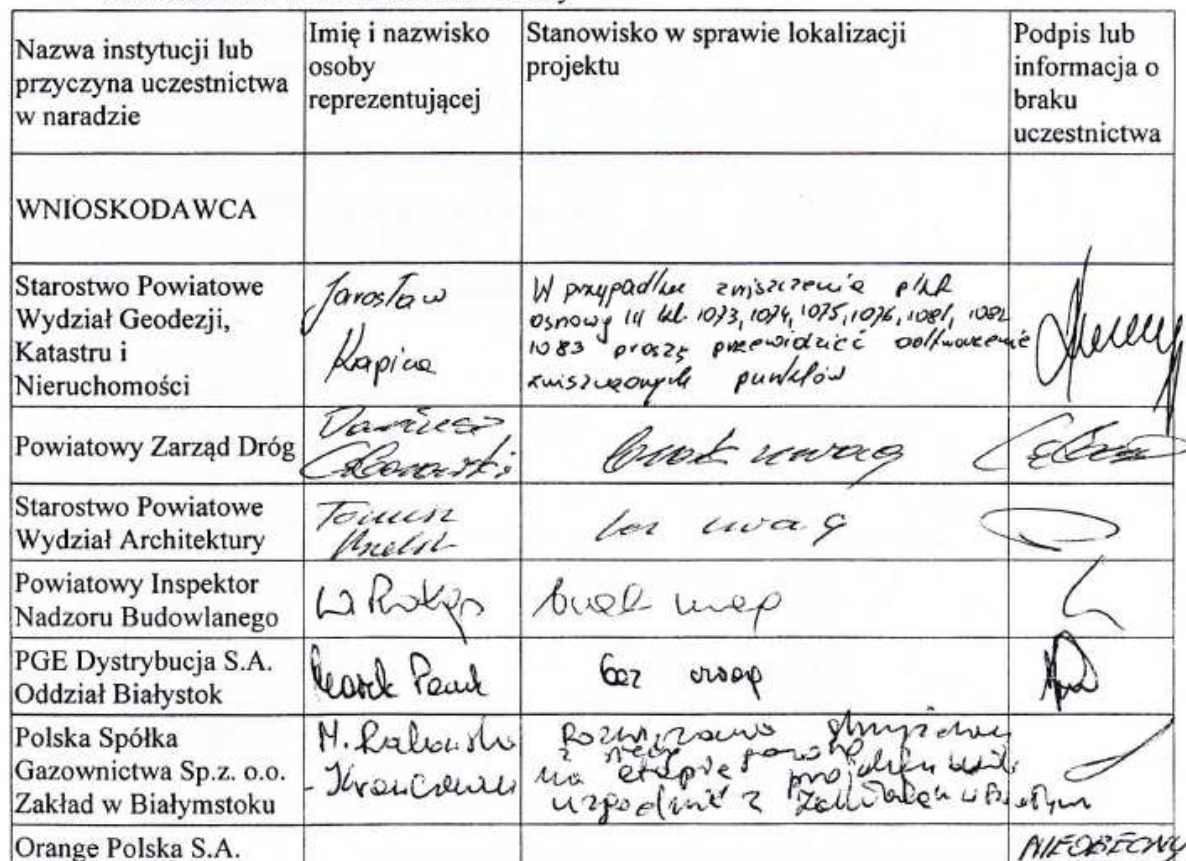 Nazwa instytucji lub
przyczyna uczestnictwa
w naradzie
Imię i nazwisko
osoby
reprezentującej
Stanowisko w sprawie lokalizacji
projektu
Podpis lub
informacja o
braku
uczestnictwa
WNIOSKODAWCA
Starostwo Powiatowe
Wydział Geodezji,
Katastru i
Nieruchomości
Jarosław
Kapica
W przypadku zniszczenia pkt
osnowy III kl. 1073, 1074, 1075, 1076, 1081, 1082
1083 proszę przewidzieć odtworzenie
zniszczonych punktów
Powiatowy Zarząd Dróg
Dariusz
brak uwag
Starostwo Powiatowe
Wydział Architektury
Tomasz
bez uwag
Powiatowy Inspektor
Nadzoru Budowlanego
W
brak uwag
PGE Dystrybucja S.A.
Oddział Białystok
Marek
bez uwag
Polska Spółka
Gazownictwa Sp.z. o.o.
Zakład w Białymstoku
M.
z siecią
na etapie
uzgodnić z Zakładem w
Orange Polska S.A.
NIEOBECNY